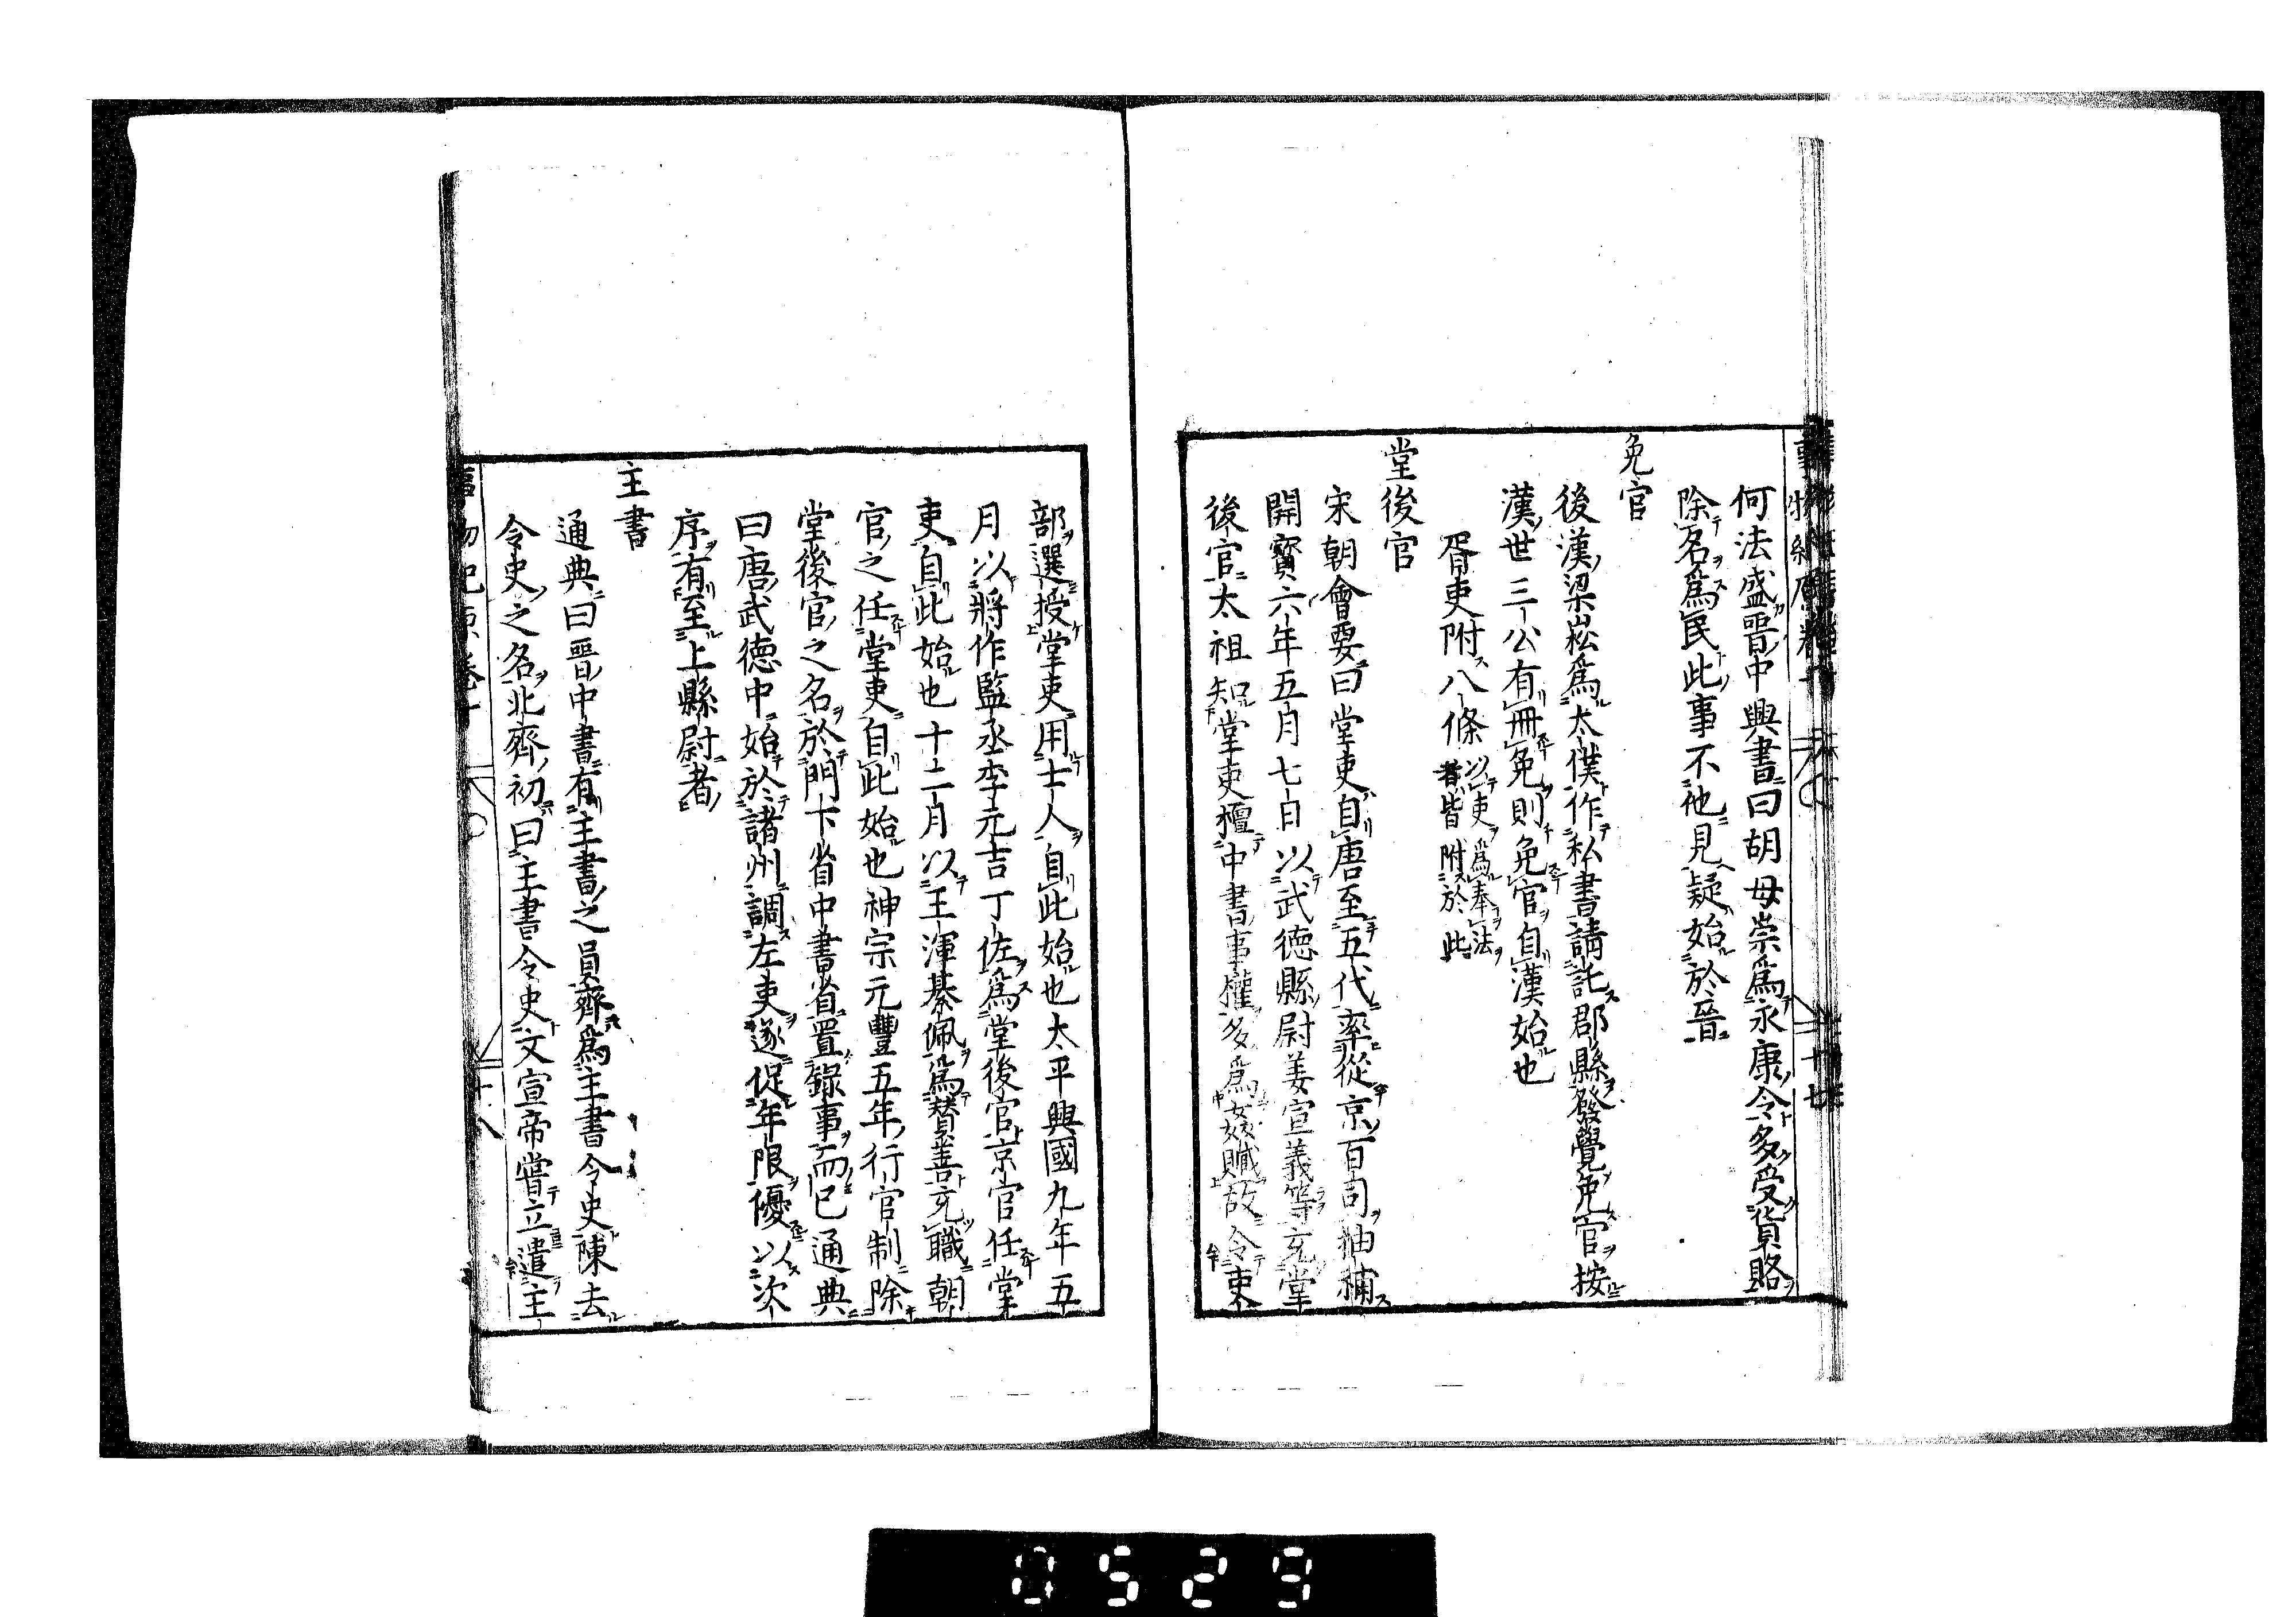 何法盛晋中興書曰胡母崇爲永康令多受貨賂
除名爲民此事不他見疑始於晉
免官
後漢梁崧爲太僕作私書請託郡縣發覺免官按
漢世三公有冊免則免官自漢始也
胥吏附八條以吏爲奉法者皆附於此
堂後官
宋朝會要曰堂吏自唐至五代率從京百司抽補
開寳六年五月七日以武徳縣尉姜宣義等充堂
後官太祖知堂吏擅中書事權多爲姦贓故令吏
部選授堂吏用士人自此始也太平興國九年五
月以將作監丞李元吉丁佐爲堂後官京官任堂
吏自此始也十二月以王渾綦佩爲賛善充職朝
官之任堂吏自此始也神宗元豐五年行官制除
堂後官之名於門下省中書省置錄事而已通典
曰唐武徳中始於諸州調左吏遂促年限優以次
序有至上縣尉者
主書
通典曰晋中書有主書之員齊爲主書令史陳去
令史之名北齊初曰主書令史文宣帝嘗立遣主
十八
0529